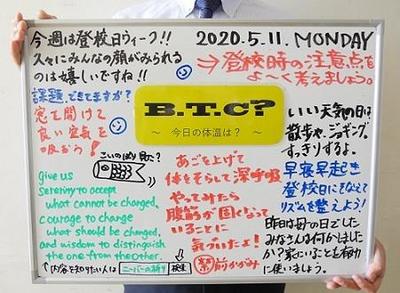 今週は登校日ウィーク!!
久々にみんなの顔がみられる
のは嬉しいですね!!
2020.5.11. MONDAY
→登校時の注意点を
よ〜く考えましょう。
課題、できてますか?
窓を開けて
良い空気を
吸おう!
B.T.C?
〜 今日の体温は? 〜
いい天気の日は
散歩や、ジョギング。
すっきりするよ。
こいのぼり見た?
give us
serenity to accept
what cannot be changed,
courage to change
what should be changed,
and wisdom to distinguish
the one from the other.
↑内容を知りたい人は ニーバーの祈り 検索
あごを上げて
体をそらして深呼吸
やってみたら
腹筋が固くなって
いることに
気づいたよ!
禁 前かがみ
早寝早起き
登校日にそなえて
リズムを整えよう!
昨日は母の日でした
みなさんは何かしました
か?家にいることを有効
に使いましょう。